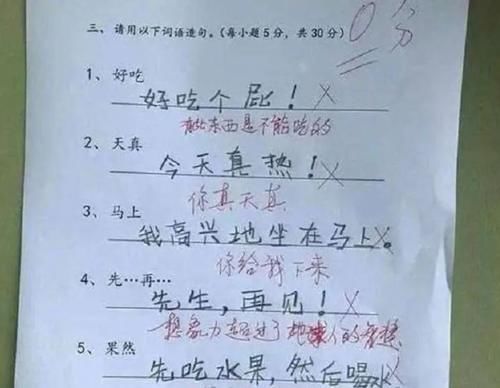 三、请用以下词语造句。（每小题5分，共30分）
0分
1、好吃
好吃个屁！
有些东西是不能吃的
2、天真
今天真热！
你真天真
3、马上
我高兴地坐在马上。
你给我下来
4、先…再…
先生，再见！
想象力超过了地球人的
5、果然
先吃水果，然后喝水